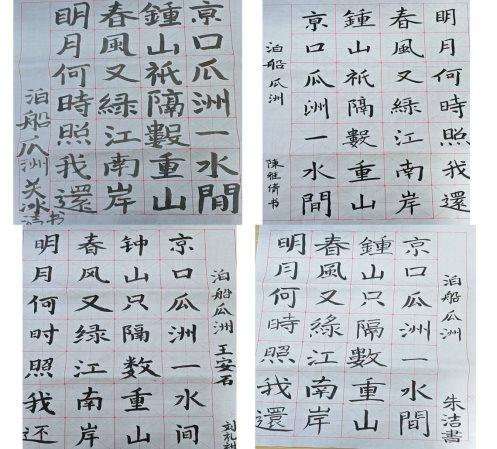 京口瓜洲一水間
鍾山祇隔數重山
春風又緑江南岸
明月何時照我還
泊船瓜洲 书
泊船瓜洲 陳雅倚书
京口瓜洲一水間
鍾山祇隔數重山
春風又緑江南岸
明月何時照我還
泊船瓜洲 王安石
京口瓜洲一水间
钟山只隔数重山
春风又绿江南岸
明月何时照我还
泊船瓜洲 朱洁書
京口瓜洲一水間
鍾山只隔數重山
春風又綠江南岸
明月何時照我還